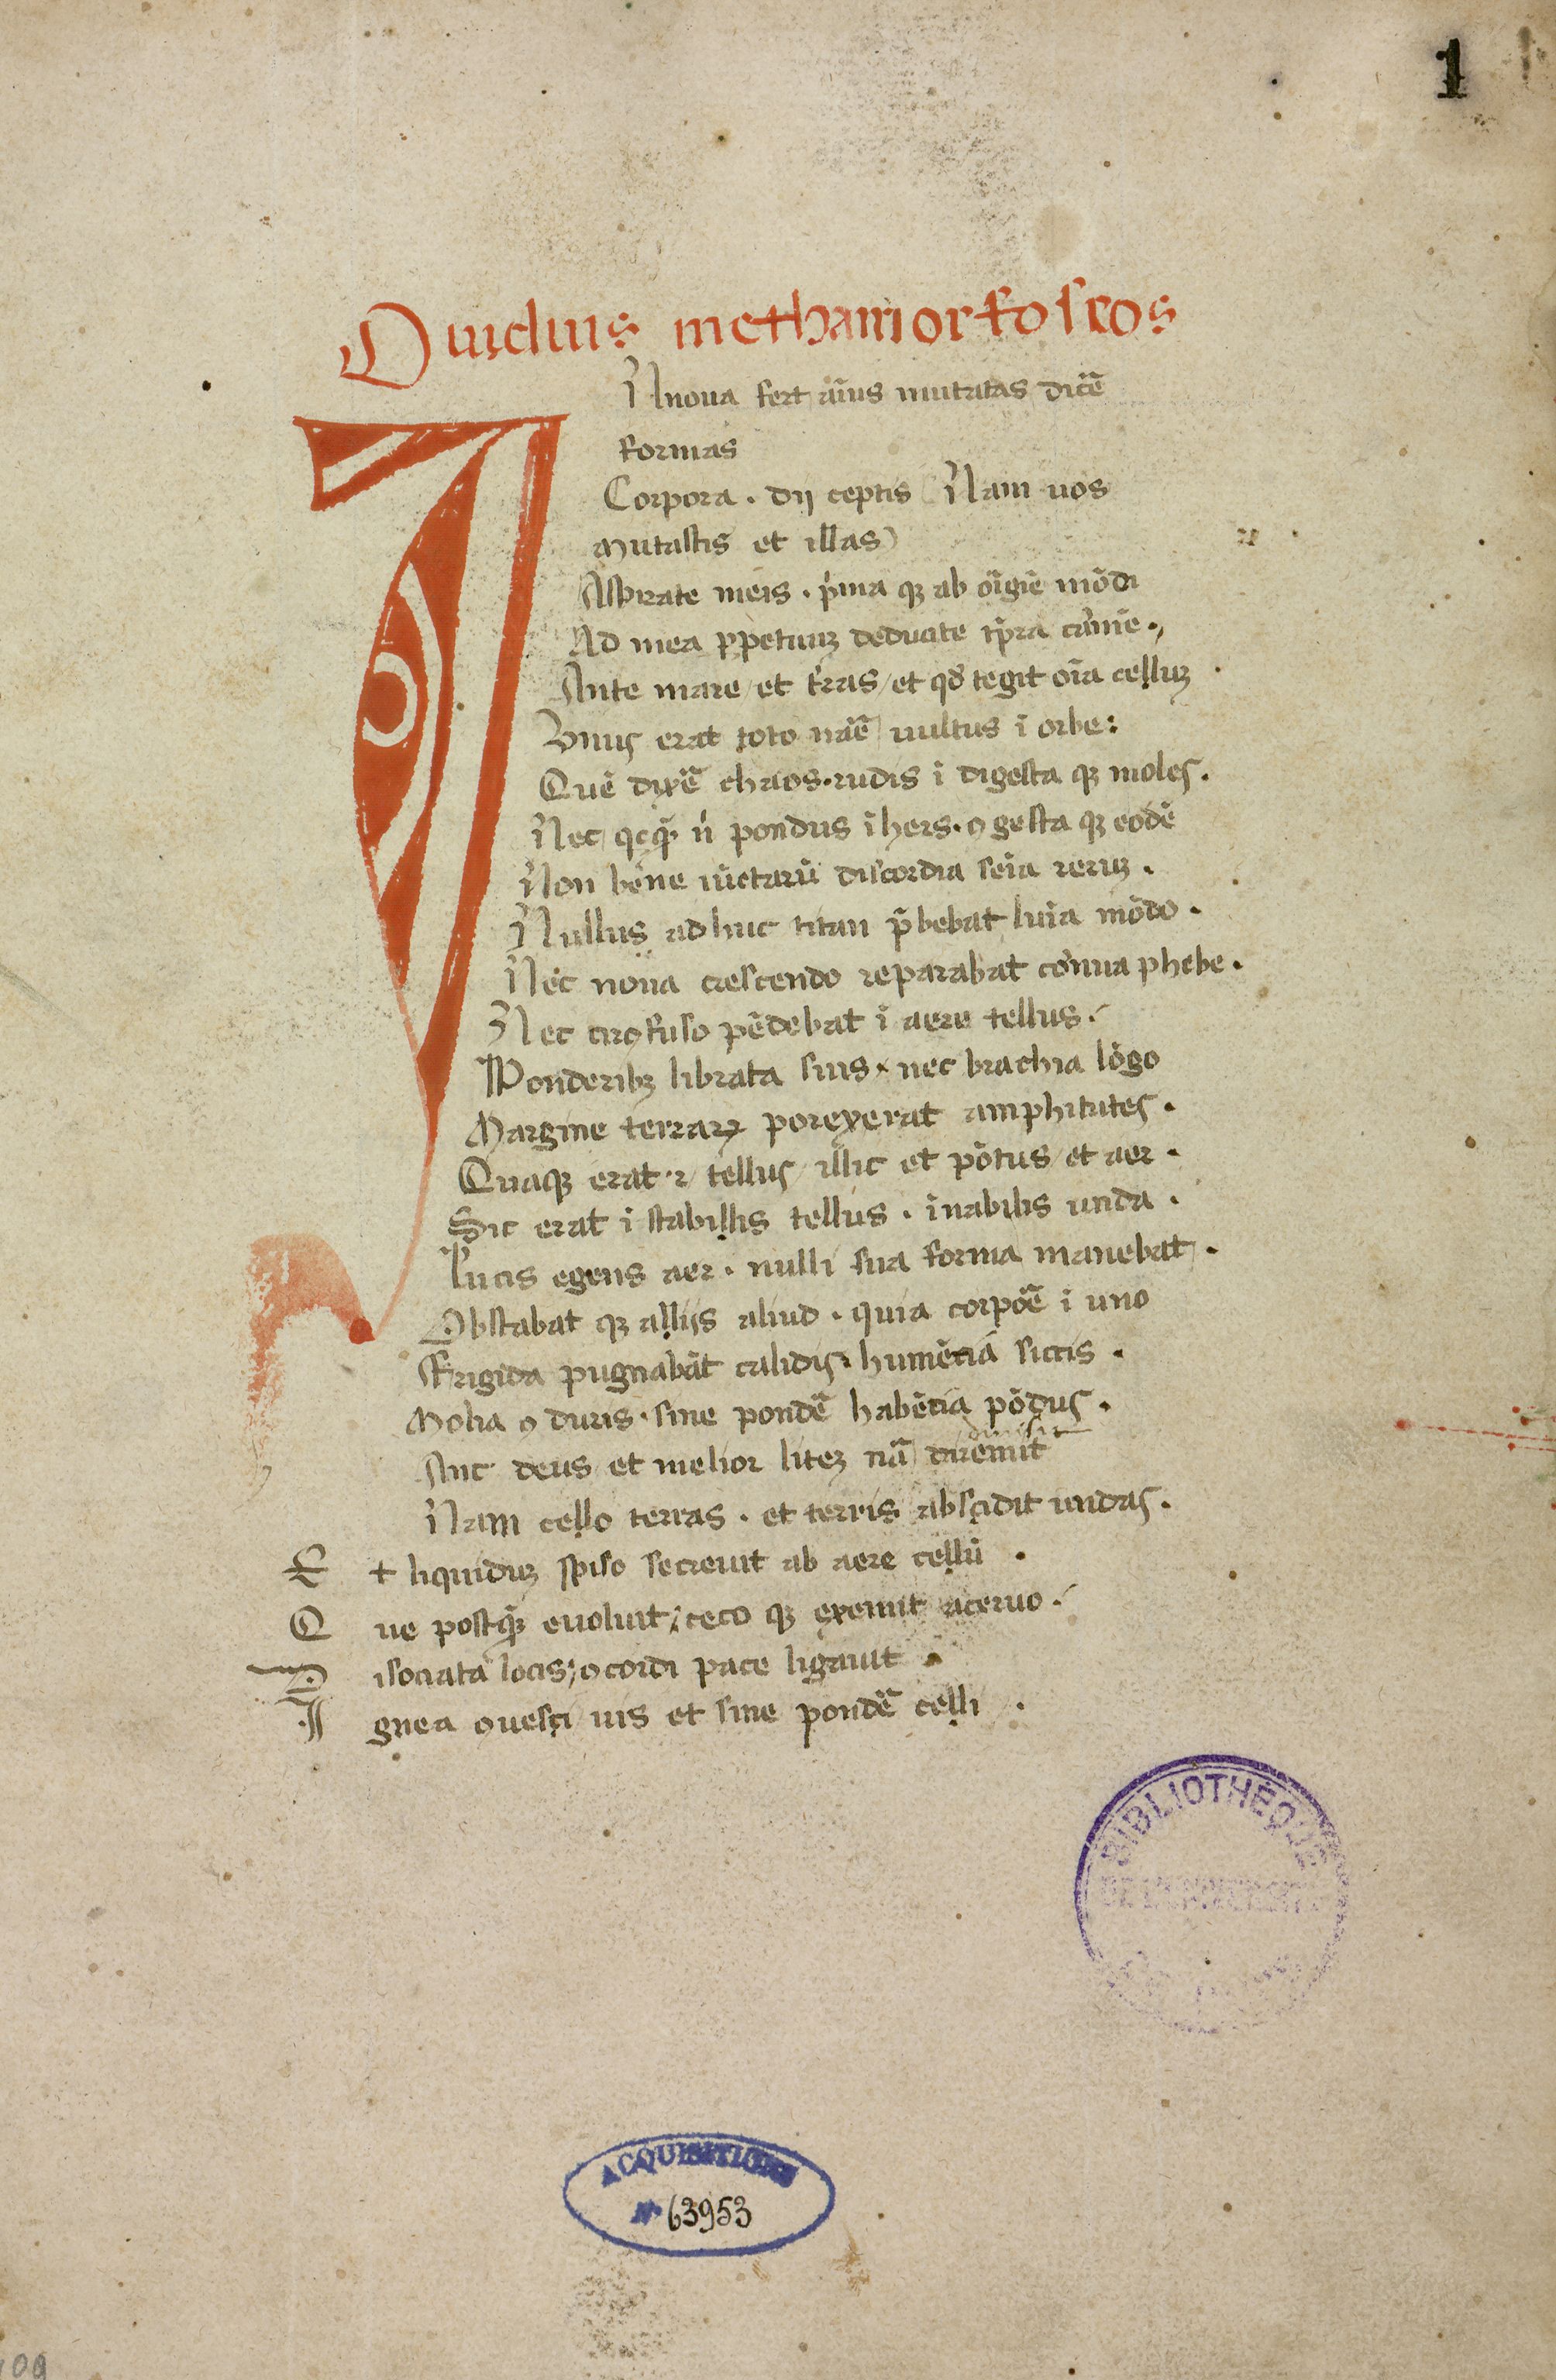 1
Ouidius methamorfoseos
INnoua fert aīus mutatas dicē̄
formas
Corpora . dij ceptis ( Nam uos
Mutastis et illas )
Aspirate meis . p̍ma qꝫ ab oīgiē mōdi
Ad mea ꝑpetuuꝫ deducite tp̄ra
Ante mare / et t̄ras / et qd̄ tegit oīa celluꝫ
Vnus erat toto nāe uultus ī orbe :
Quē dixē chaos . rudis ī digesta qꝫ moles .
Nec qcq̄ȝ n̍ pondus īhers . ꝯgesta qꝫ eodē
Non bene iūctarū discordia seīa reruꝫ .
Nullus adhuc titan p̄bebat luīa mōdo .
Nec noua crescendo reparabat cornua phebe .
Nec circūfuso pēdebat ī aere tellus .
Ponderibꝫ librata suis . nec brachia lōgo
Margine terraꝝ porexerat amphitrites .
Quaqꝫ erat . ⁊ / tellus / illic et pōtus / et aer .
Sic erat ī stabillis tellus . īnabilis unda .
Lucis egens aer . nulli sua forma manebat .
Obstabat qꝫ allijs aliud . quia corpoē ī uno
Frigida pugnabāt calidis . humētia siccis .
Molia ꝯ duris . sine pondē habētia pōdus .
diuisit
Anc deus / et melior liteꝫ nā diremit
Nam cello terras . et terris abscidit undas .
E t liquiduꝫ spiso secreuit ab aere cellū .
Q ue postq̄ȝ euoluit ; ceco qꝫ exemit aceruo .
D isociata locis ; ꝯcordi pace ligauit .
I gnea ꝯuesci uis et sine pondē celli .
BIBLIOTHÈQUE
ACQUISITIONS
N° 63953